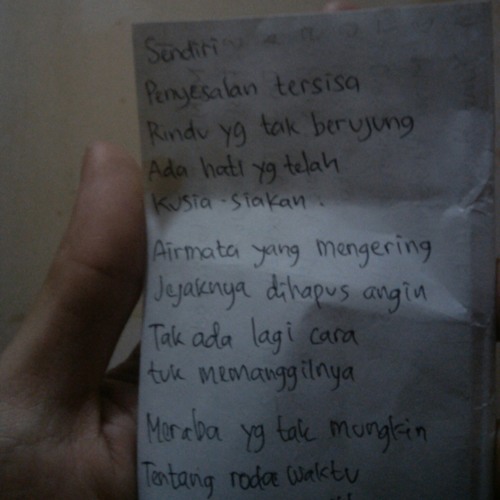 Sendiri
Penyesalan tersisa
Rindu yg tak berujung
Ada hati yg telah
Kusia-siakan.
Airmata yang mengering
Jejaknya dihapus angin
Tak ada lagi cara
tuk memanggilnya
Meraba yg tak mungkin
Tentang rodae waktu